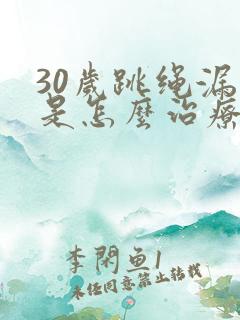 30歲跳绳漏
是怎麼治療
李閑魚1
未经同意禁止转载